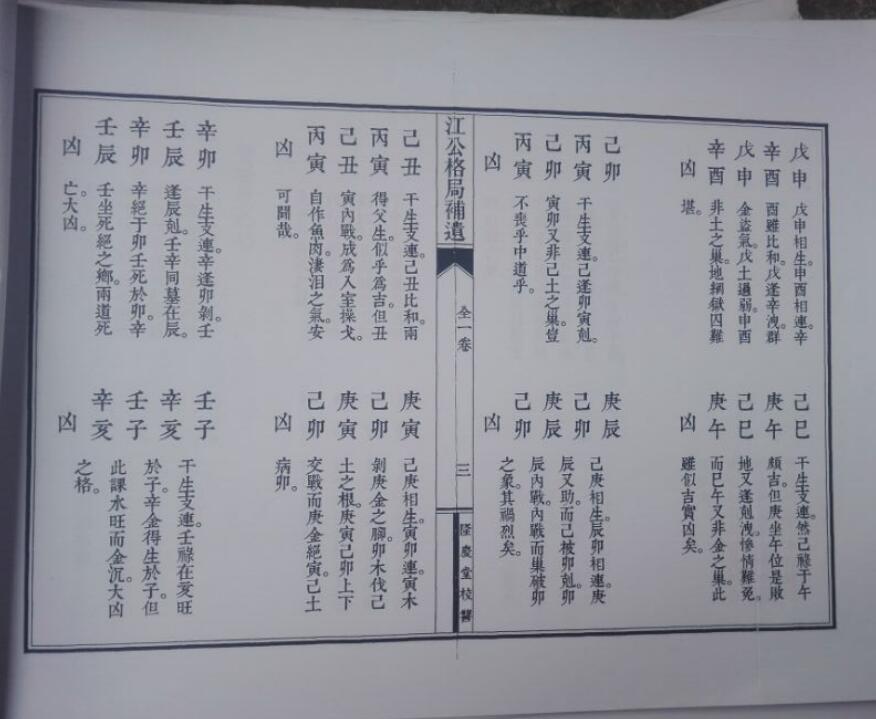 戊申
辛酉
戊申
辛酉
凶
戊申相生。申酉相連。辛
酉雖比和。戊逢辛洩。群
金盜氣。戊土過弱。申酉
非土之巢。地網獄囚難
堪。
己巳
庚午
己巳
庚午
凶
干生支連。然己祿于午
頗吉。但庚坐午位是敗
地。又逢剋洩。慘情難免。
而巳午又非金之巢。此
雖似吉實凶矣。
己卯
丙寅
己卯
丙寅
凶
干生支連。己逢卯寅剋。
寅卯又非己土之巢。豈
不喪乎中道乎。
庚辰
己卯
庚辰
己卯
凶
己庚相生。辰卯相連。庚
辰又助。而己被卯剋。卯
辰內戰。內戰而巢破卯
之象。其禍烈矣。
江公格局補遺
全一卷
三
隆慶堂校讐
己丑
丙寅
己丑
丙寅
凶
干生支連。己丑比和。兩
得父生。似乎為吉。但丑
寅內戰。成為入室操戈。
自作魚肉。淒泪之氣。安
可鬪哉。
庚寅
己卯
庚寅
己卯
凶
己庚相生。寅卯連。寅木
剝庚金之腳。卯木伐己
土之根。庚寅己卯上下
交戰。而庚金絕寅。己土
病卯。
辛卯
壬辰
辛卯
壬辰
凶
干生支連。辛逢卯剝。壬
逢辰剋。壬辛同墓在辰。
辛絕于卯。壬死於卯。辛
壬坐死絕之鄉。兩道死
亡。大凶。
壬子
辛亥
壬子
辛亥
凶
干生支連。壬祿在亥旺
於子。辛金得生於子。但
此課水旺而金沉。大凶
之格。